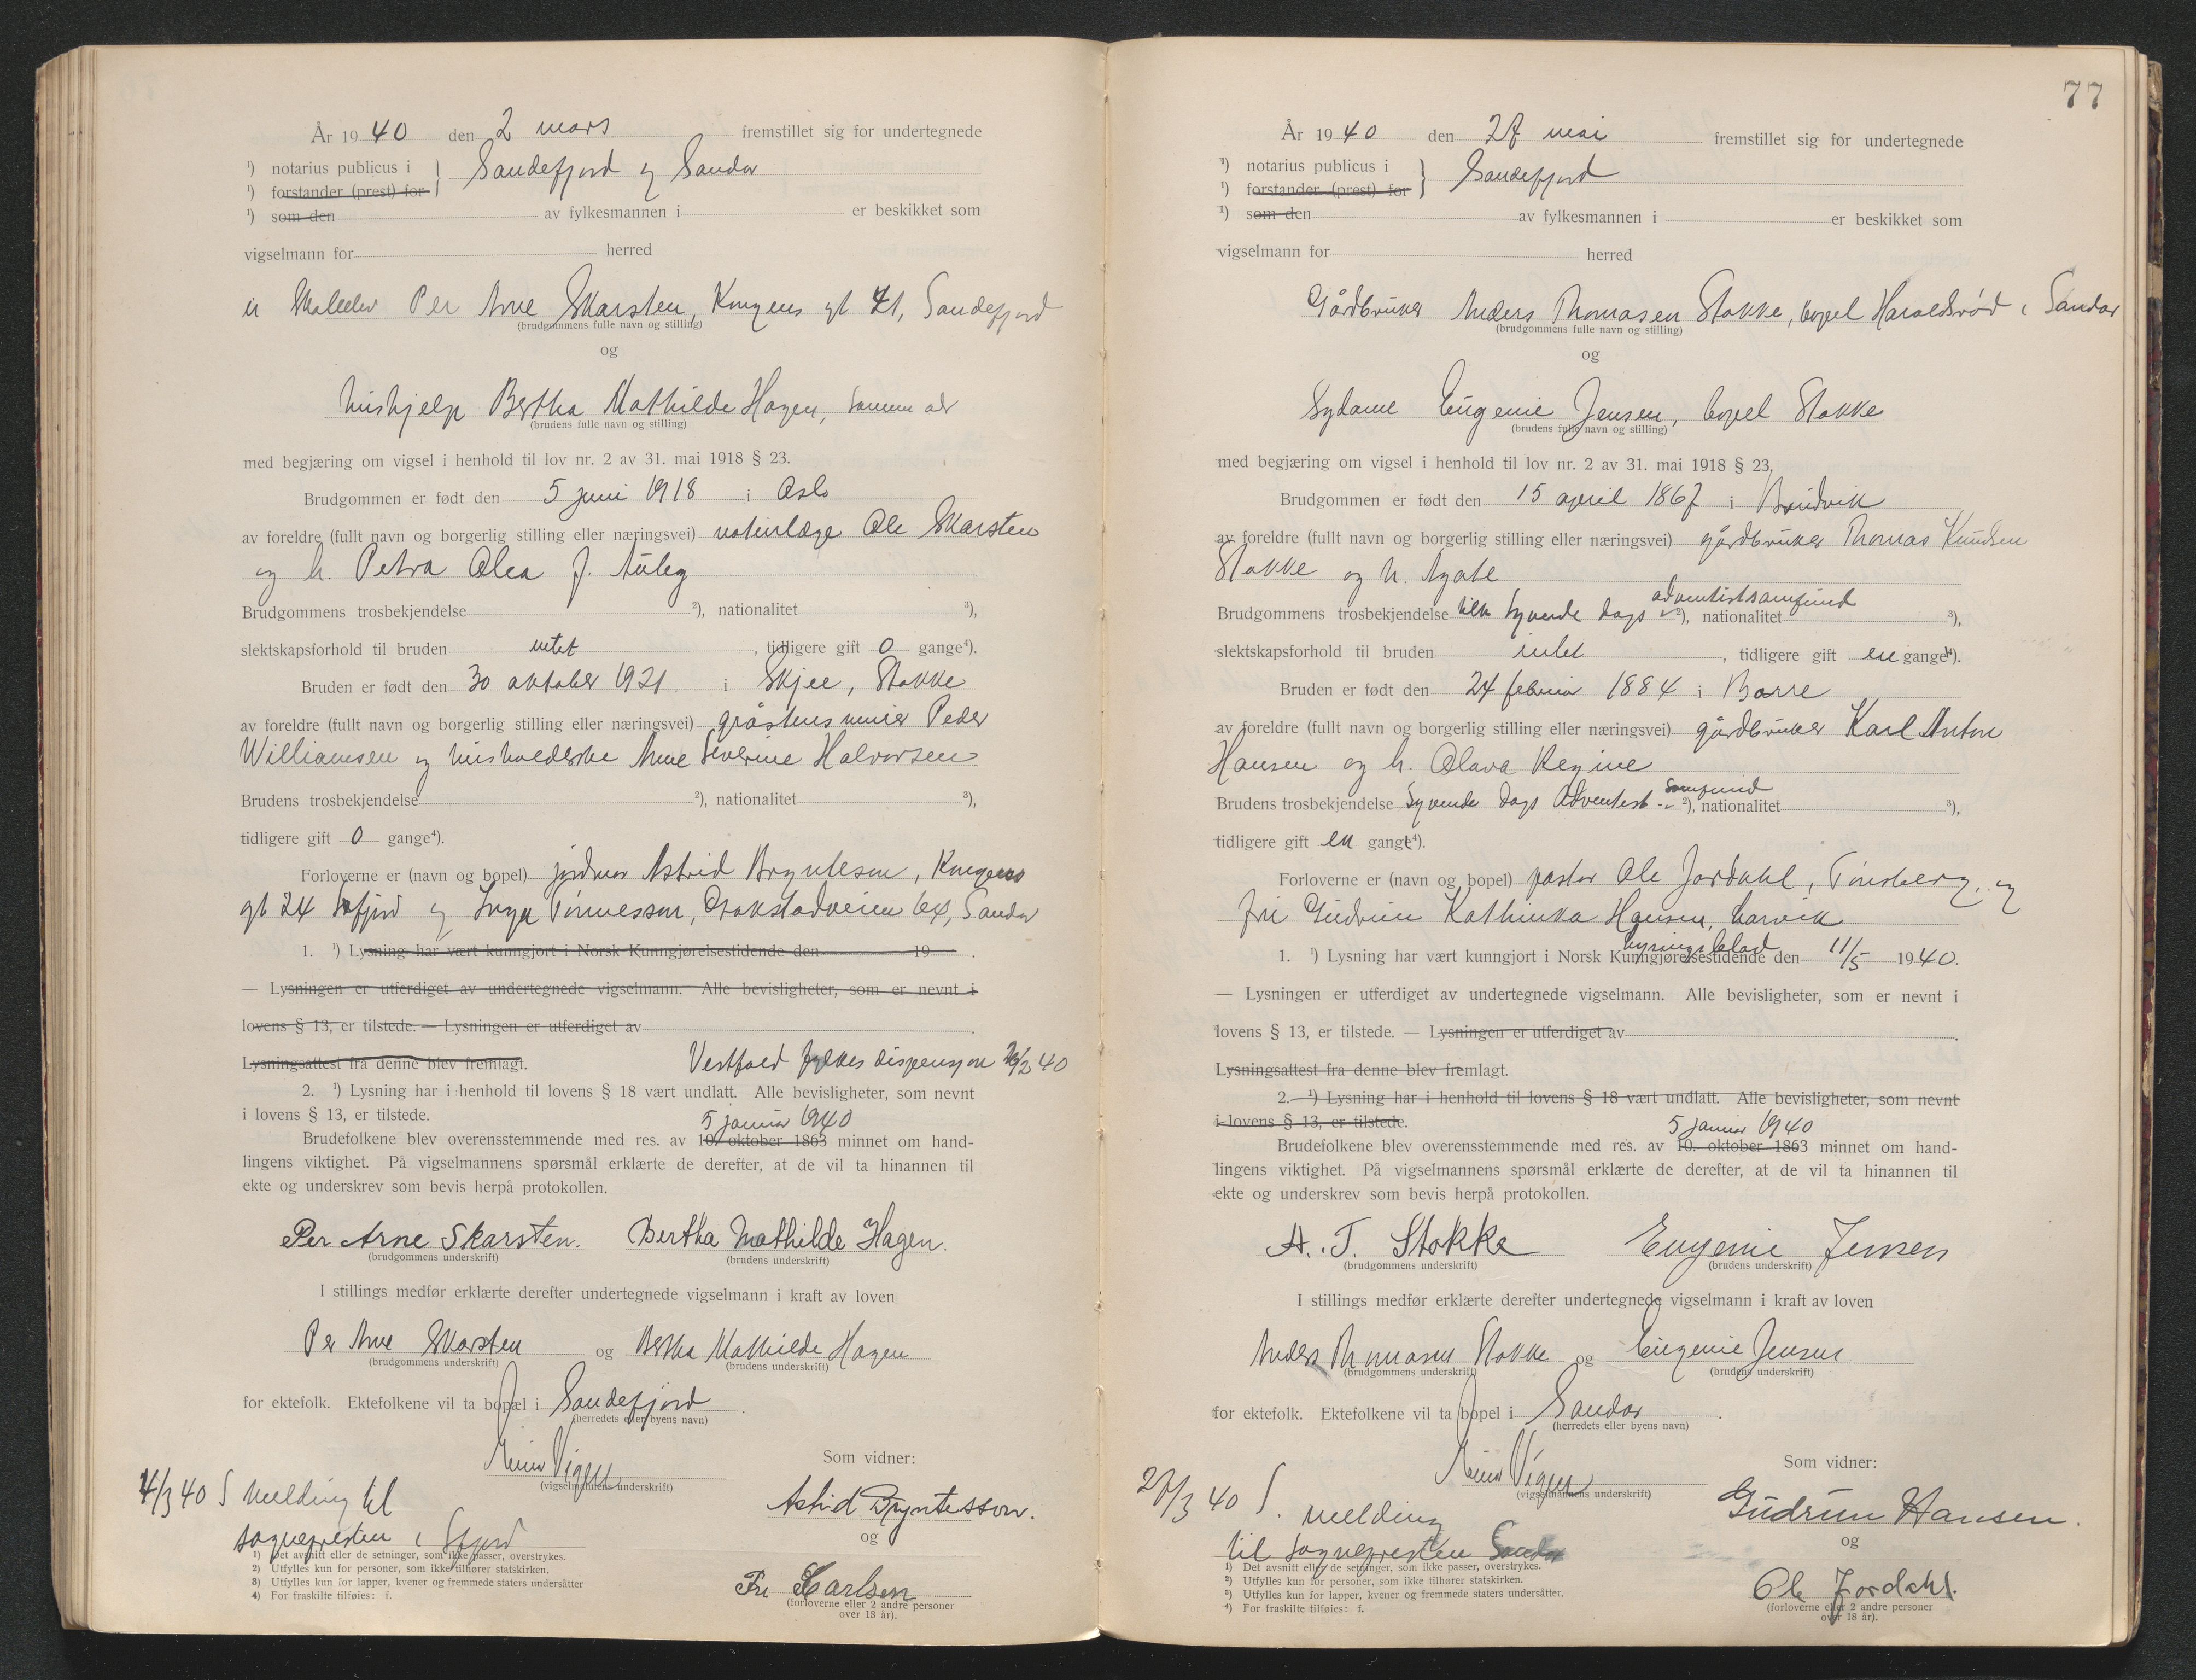 År 1940 den 2 mars fremstillet sig for undertegnede
¹) notarius publicus i } Sandefjord og Sandar
¹) forstander (prest) for
¹) som den av fylkesmannen i er beskikket som
vigselmann for herred
Per Arne Skarsten, Kongens gt 41, Sandefjord
(brudgommens fulle navn og stilling)
og
hushjelp Bertha Mathilde Hagen, samme adr
(brudens fulle navn og stilling)
med begjæring om vigsel i henhold til lov nr. 2 av 31. mai 1918 § 23.
Brudgommen er født den 5 juni 1918 i Oslo
av foreldre (fullt navn og borgerlig stilling eller næringsvei) naturlæge Ole Skarsten
og h. Petra Olea f. Auley
Brudgommens trosbekjendelse ²), nationalitet ³),
slektskapsforhold til bruden intet, tidligere gift 0 gange⁴).
Bruden er født den 30 oktober 1921 i Skjee, Stokke
av foreldre (fullt navn og borgerlig stilling eller næringsvei) gråstensmurer Peder
Williamsen og husholderske Anne Severine Halvorsen
Brudens trosbekjendelse ²), nationalitet ³),
tidligere gift 0 gange⁴).
Forloverne er (navn og bopel) jordmor Astrid Bryntesson, Kongens
gt 24 Sefjord og Inga Tønnessen, Gokstadveien 64, Sandar
1. ¹) Lysning har vært kunngjort i Norsk Kunngjørelsestidende den 19 .
— Lysningen er utferdiget av undertegnede vigselmann. Alle bevisligheter, som er nevnt i
lovens § 13, er tilstede. — Lysningen er utferdiget av .
Lysningsattest fra denne blev fremlagt. Vestfold fylkes dispensasjon 26/2 40
2. ¹) Lysning har i henhold til lovens § 18 vært undlatt. Alle bevisligheter, som nevnt
i lovens § 13, er tilstede. 5 januar 1940
Brudefolkene blev overensstemmende med res. av 10. oktober 1863 minnet om hand-
lingens viktighet. På vigselmannens spørsmål erklærte de derefter, at de vil ta hinannen til
ekte og underskrev som bevis herpå protokollen.
Per Arne Skarsten. Bertha Mathilde Hagen.
(brudgommens underskrift) (brudens underskrift)
I stillings medfør erklærte derefter undertegnede vigselmann i kraft av loven
Per Arne Skarsten og Bertha Mathilde Hagen
(brudgommens underskrift) (brudens underskrift)
for ektefolk. Ektefolkene vil ta bopæl i Sandefjord .
(herredets eller byens navn)
Vigen
(vigselmannens underskrift)
Som vidner:
4/3 40 S melding til
sognepresten i Sfjord
Astrid Bryntesson.
og
Fru Karlsen
(forloverne eller 2 andre personer
over 18 år).
1) Det avsnitt eller de setninger, som ikke passer, overstrykes.
2) Utfylles kun for personer, som ikke tilhører statskirken.
3) Utfylles kun for lapper, kvener og fremmede staters undersåtter
4) For fraskilte tilføies: f.
77
År 1940 den 27 mai fremstillet sig for undertegnede
¹) notarius publicus i } Sandefjord
¹) forstander (prest) for
¹) som den av fylkesmannen i er beskikket som
vigselmann for herred
Gårdbruker Anders Thomasen Stokke, bopel Haraldsrød i Sandar
(brudgommens fulle navn og stilling)
og
Sydame Eugenie Jensen, bopel Stokke
(brudens fulle navn og stilling)
med begjæring om vigsel i henhold til lov nr. 2 av 31. mai 1918 § 23.
Brudgommen er født den 15 april 1867 i Bruvik
av foreldre (fullt navn og borgerlig stilling eller næringsvei) gårdbruker Thomas Knudsen
Stokke og h. Agate
adventistsamfund
Brudgommens trosbekjendelse Syvende dags ²), nationalitet ³),
slektskapsforhold til bruden intet, tidligere gift en gange⁴).
Bruden er født den 24 februar 1884 i Borre
av foreldre (fullt navn og borgerlig stilling eller næringsvei) gårdbruker Karl Anton
Hansen og h. Olava Regine
samfund
Brudens trosbekjendelse Syvende dags Adventist- ²), nationalitet ³),
tidligere gift en gange⁴).
Forloverne er (navn og bopel) pastor Ole Jordahl, Tønsberg, og
frk Gudrun Kathinka Hansen, Larvik
lysingsblad
1. ¹) Lysning har vært kunngjort i Norsk Kunngjørelsestidende den 11/5 1940.
— Lysningen er utferdiget av undertegnede vigselmann. Alle bevisligheter, som er nevnt i
lovens § 13, er tilstede. — Lysningen er utferdiget av .
Lysningsattest fra denne blev fremlagt.
2. ¹) Lysning har i henhold til lovens § 18 vært undlatt. Alle bevisligheter, som nevnt
i lovens § 13, er tilstede. 5 januar 1940
Brudefolkene blev overensstemmende med res. av 10. oktober 1863 minnet om hand-
lingens viktighet. På vigselmannens spørsmål erklærte de derefter, at de vil ta hinannen til
ekte og underskrev som bevis herpå protokollen.
A. T. Stokke Eugenie Jensen
(brudgommens underskrift) (brudens underskrift)
I stillings medfør erklærte derefter undertegnede vigselmann i kraft av loven
Anders Thomasen Stokke og Eugenie Jensen
(brudgommens underskrift) (brudens underskrift)
for ektefolk. Ektefolkene vil ta bopel i Sandar .
(herredets eller byens navn)
Vigen
(vigselmannens underskrift)
Som vidner:
S. melding
til sognepresten Sandar
Gudrun Hansen.
og
Ole Jordahl.
(forloverne eller 2 andre personer
over 18 år).
1) Det avsnitt eller de setninger, som ikke passer, overstrykes.
²) Utfylles kun for personer, som ikke tilhører statskirken.
³) Utfylles kun for lapper, kvener og fremmede staters undersåtter.
⁴) For fraskilte tilføies: f.